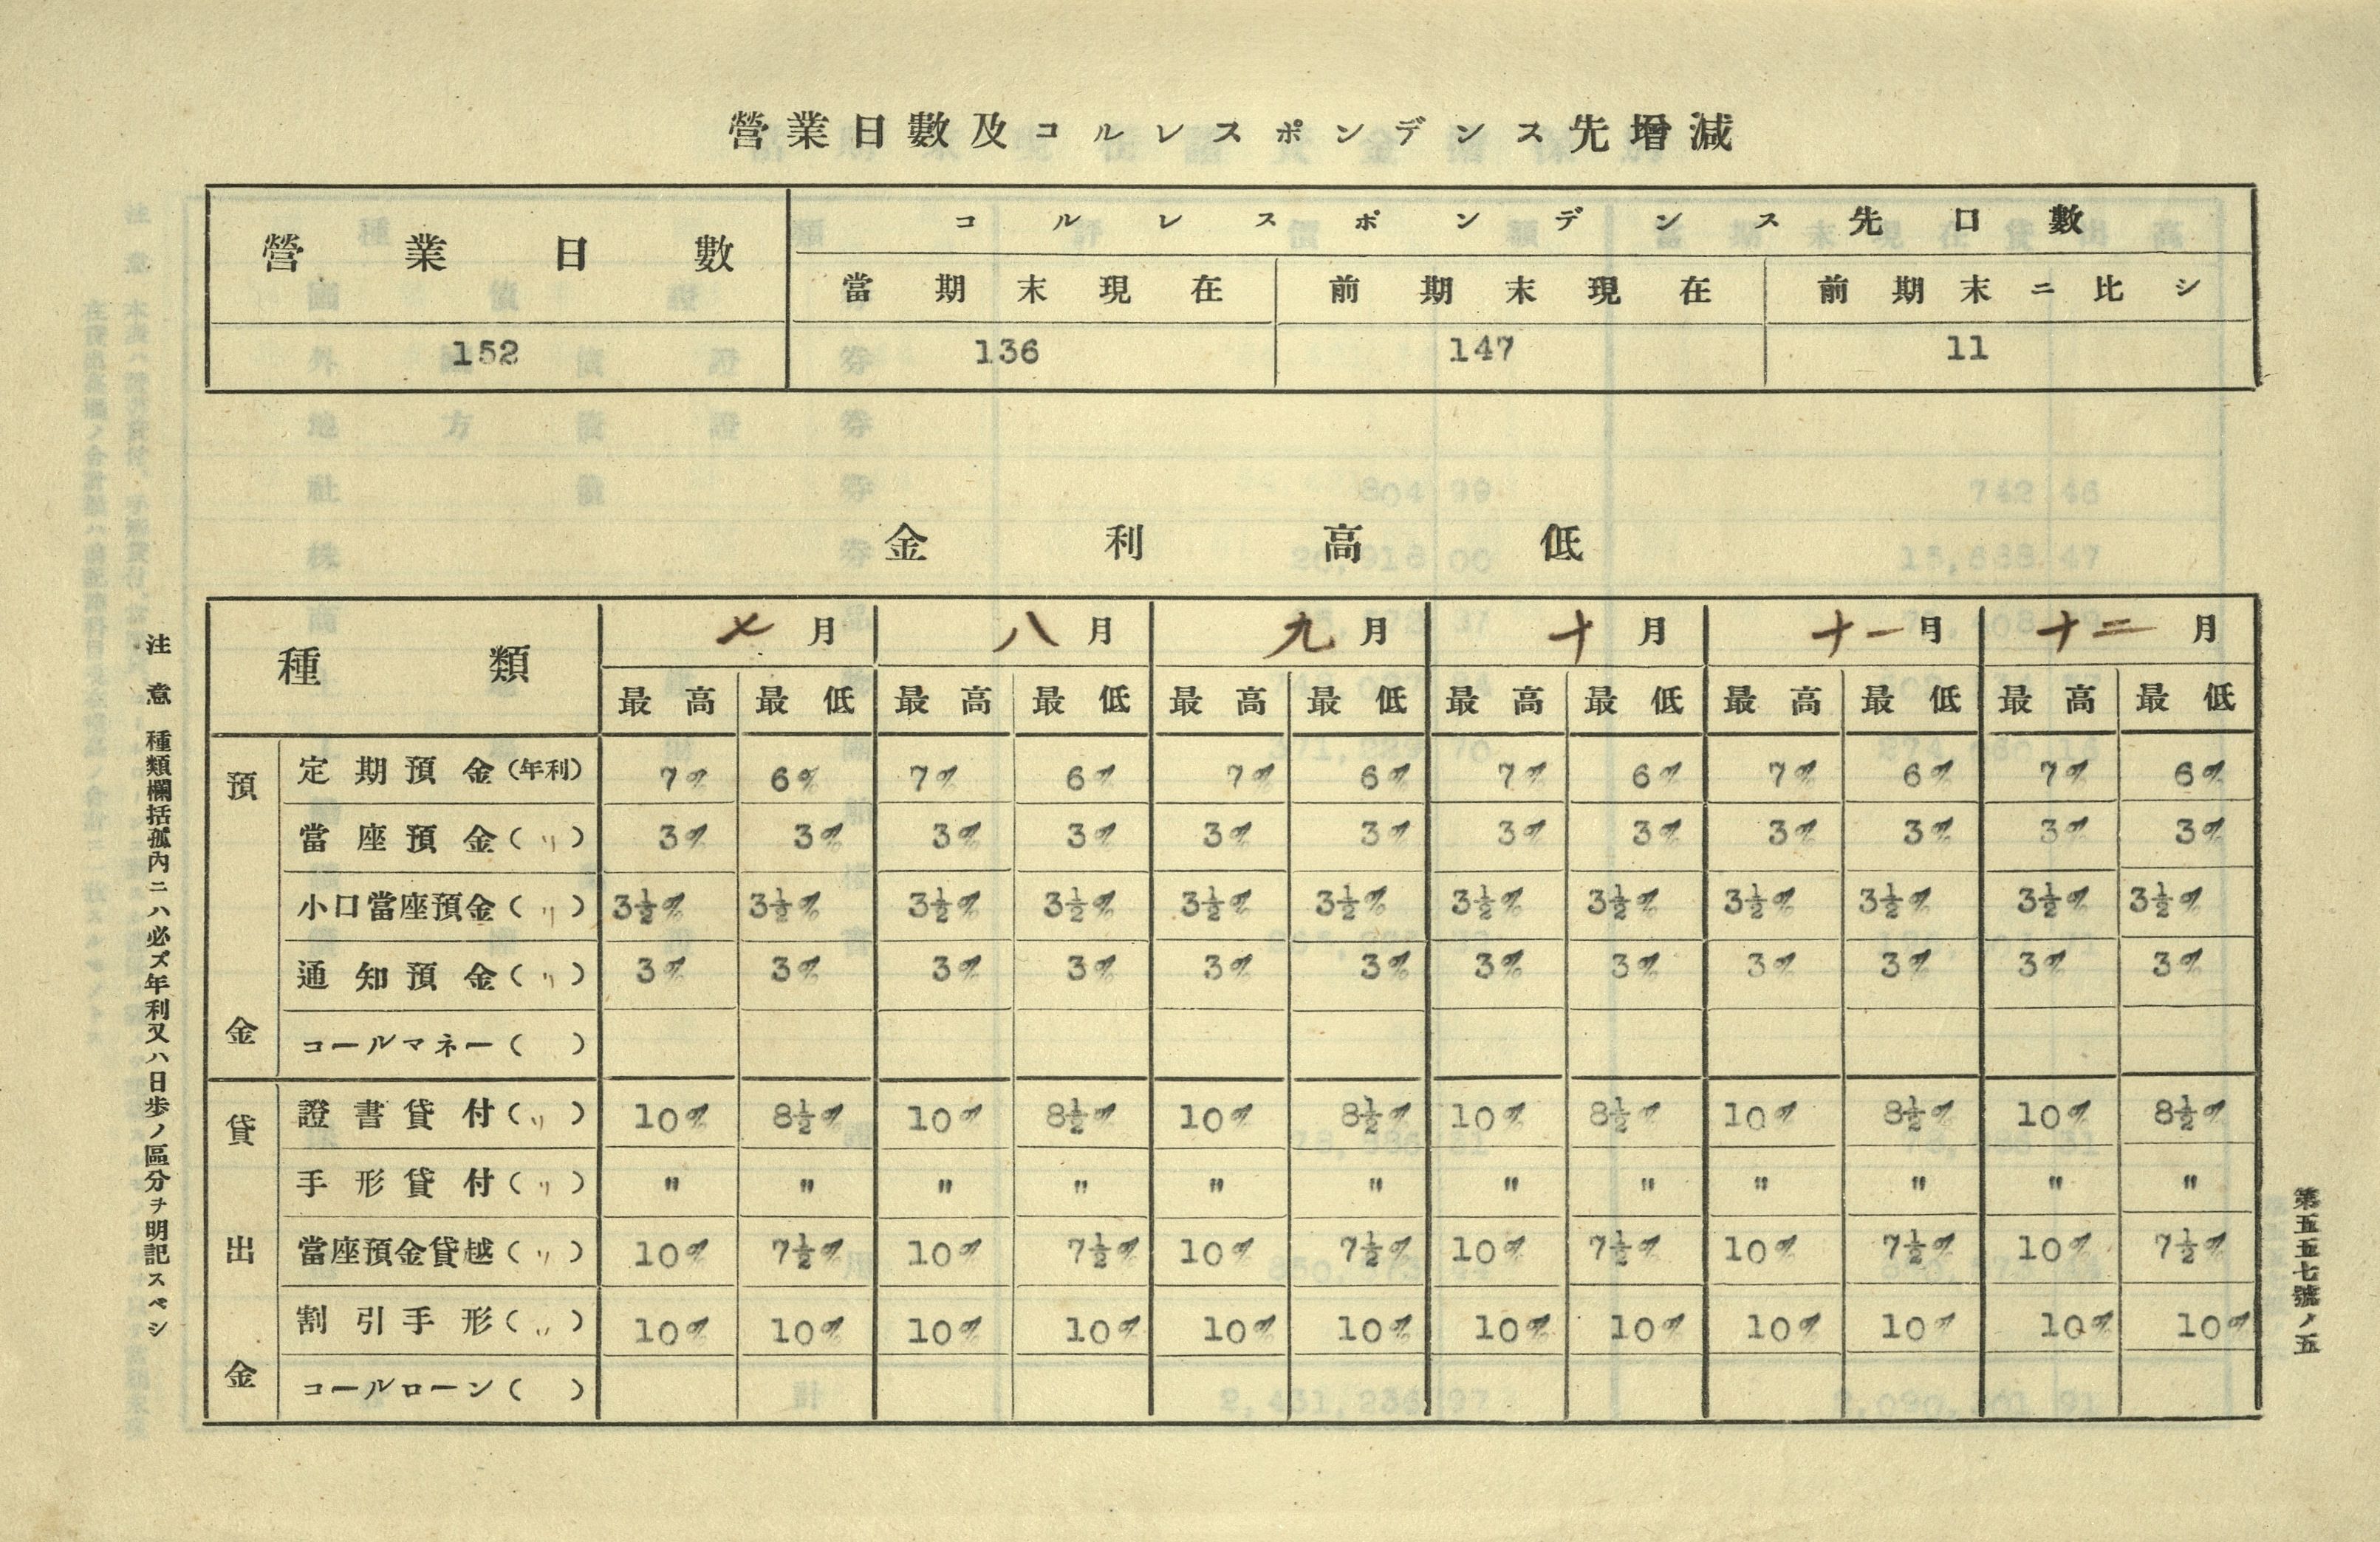 營業日數及コルレスポンデンス先增減
營業日數 コルレスポンデンス先口數
當期末現在 前期末現在 前期末ニ比シ
152 136 147 11
金利高低
種類 七月 八月 九月 十月 十一月 十二月
最高 最低 最高 最低 最高 最低 最高 最低 最高 最低 最高 最低
預金
定期預金(年利) 7% 6% 7% 6% 7% 6% 7% 6% 7% 6% 7% 6%
當座預金(〃) 3% 3% 3% 3% 3% 3% 3% 3% 3% 3% 3% 3%
小口當座預金(〃) 3½% 3½% 3½% 3½% 3½% 3½% 3½% 3½% 3½% 3½% 3½% 3½%
通知預金(〃) 3% 3% 3% 3% 3% 3% 3% 3% 3% 3% 3% 3%
コールマネー( )
貸出金
證書貸付(〃) 10% 8½% 10% 8½% 10% 8½% 10% 8½% 10% 8½% 10% 8½%
手形貸付(〃) " " " " " " " " " " " "
當座預金貸越(〃) 10% 7½% 10% 7½% 10% 7½% 10% 7½% 10% 7½% 10% 7½%
割引手形(〃) 10% 10% 10% 10% 10% 10% 10% 10% 10% 10% 10% 10%
コールローン( )
注意 種類欄括孤內ニハ必ズ年利又ハ日步ノ區分ヲ明記スベシ
第五五七號ノ五